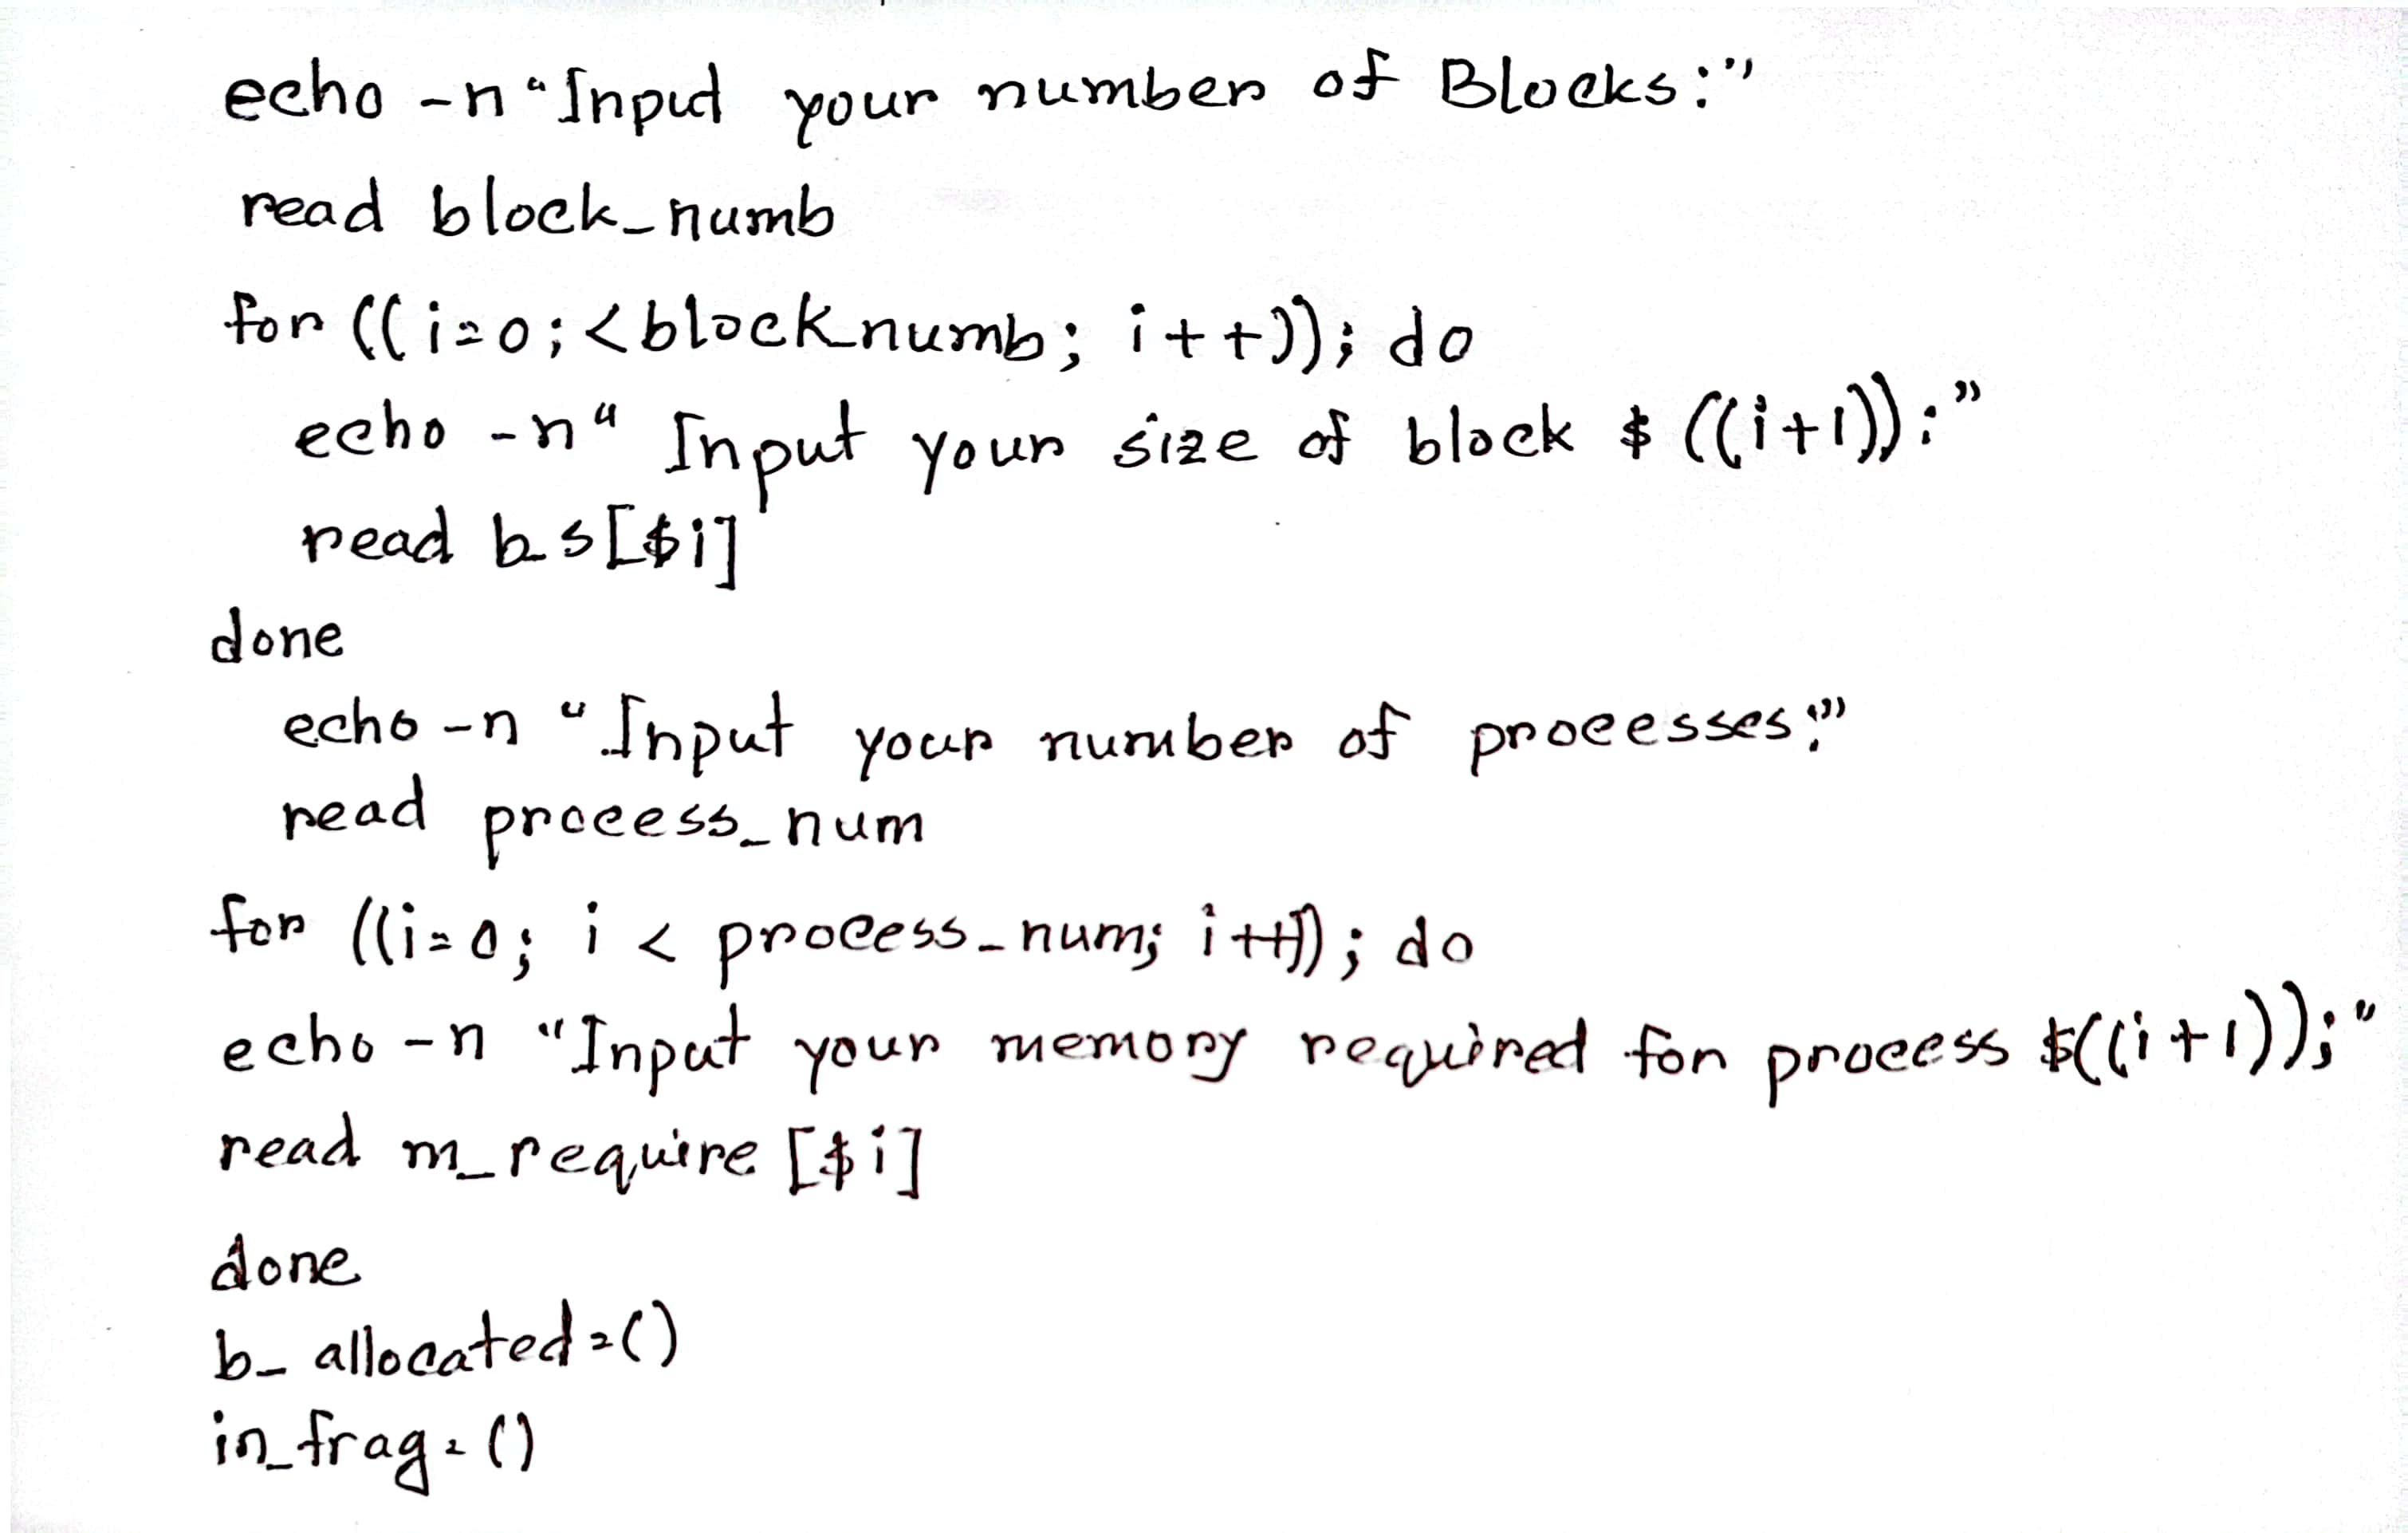 echo -n "Input your number of Blocks:"
read block_numb
for ((i=0; <block_numb; i++)); do
echo -n " Input your size of block $ ((i+1)):"
read b_s[$i]
done
echo -n "Input your number of processes:"
read process_num
for ((i=0; i < process_num; i++)); do
echo -n "Input your memory required for process $((i+1));"
read m_require [$i]
done
b_allocated=()
in_frag=()